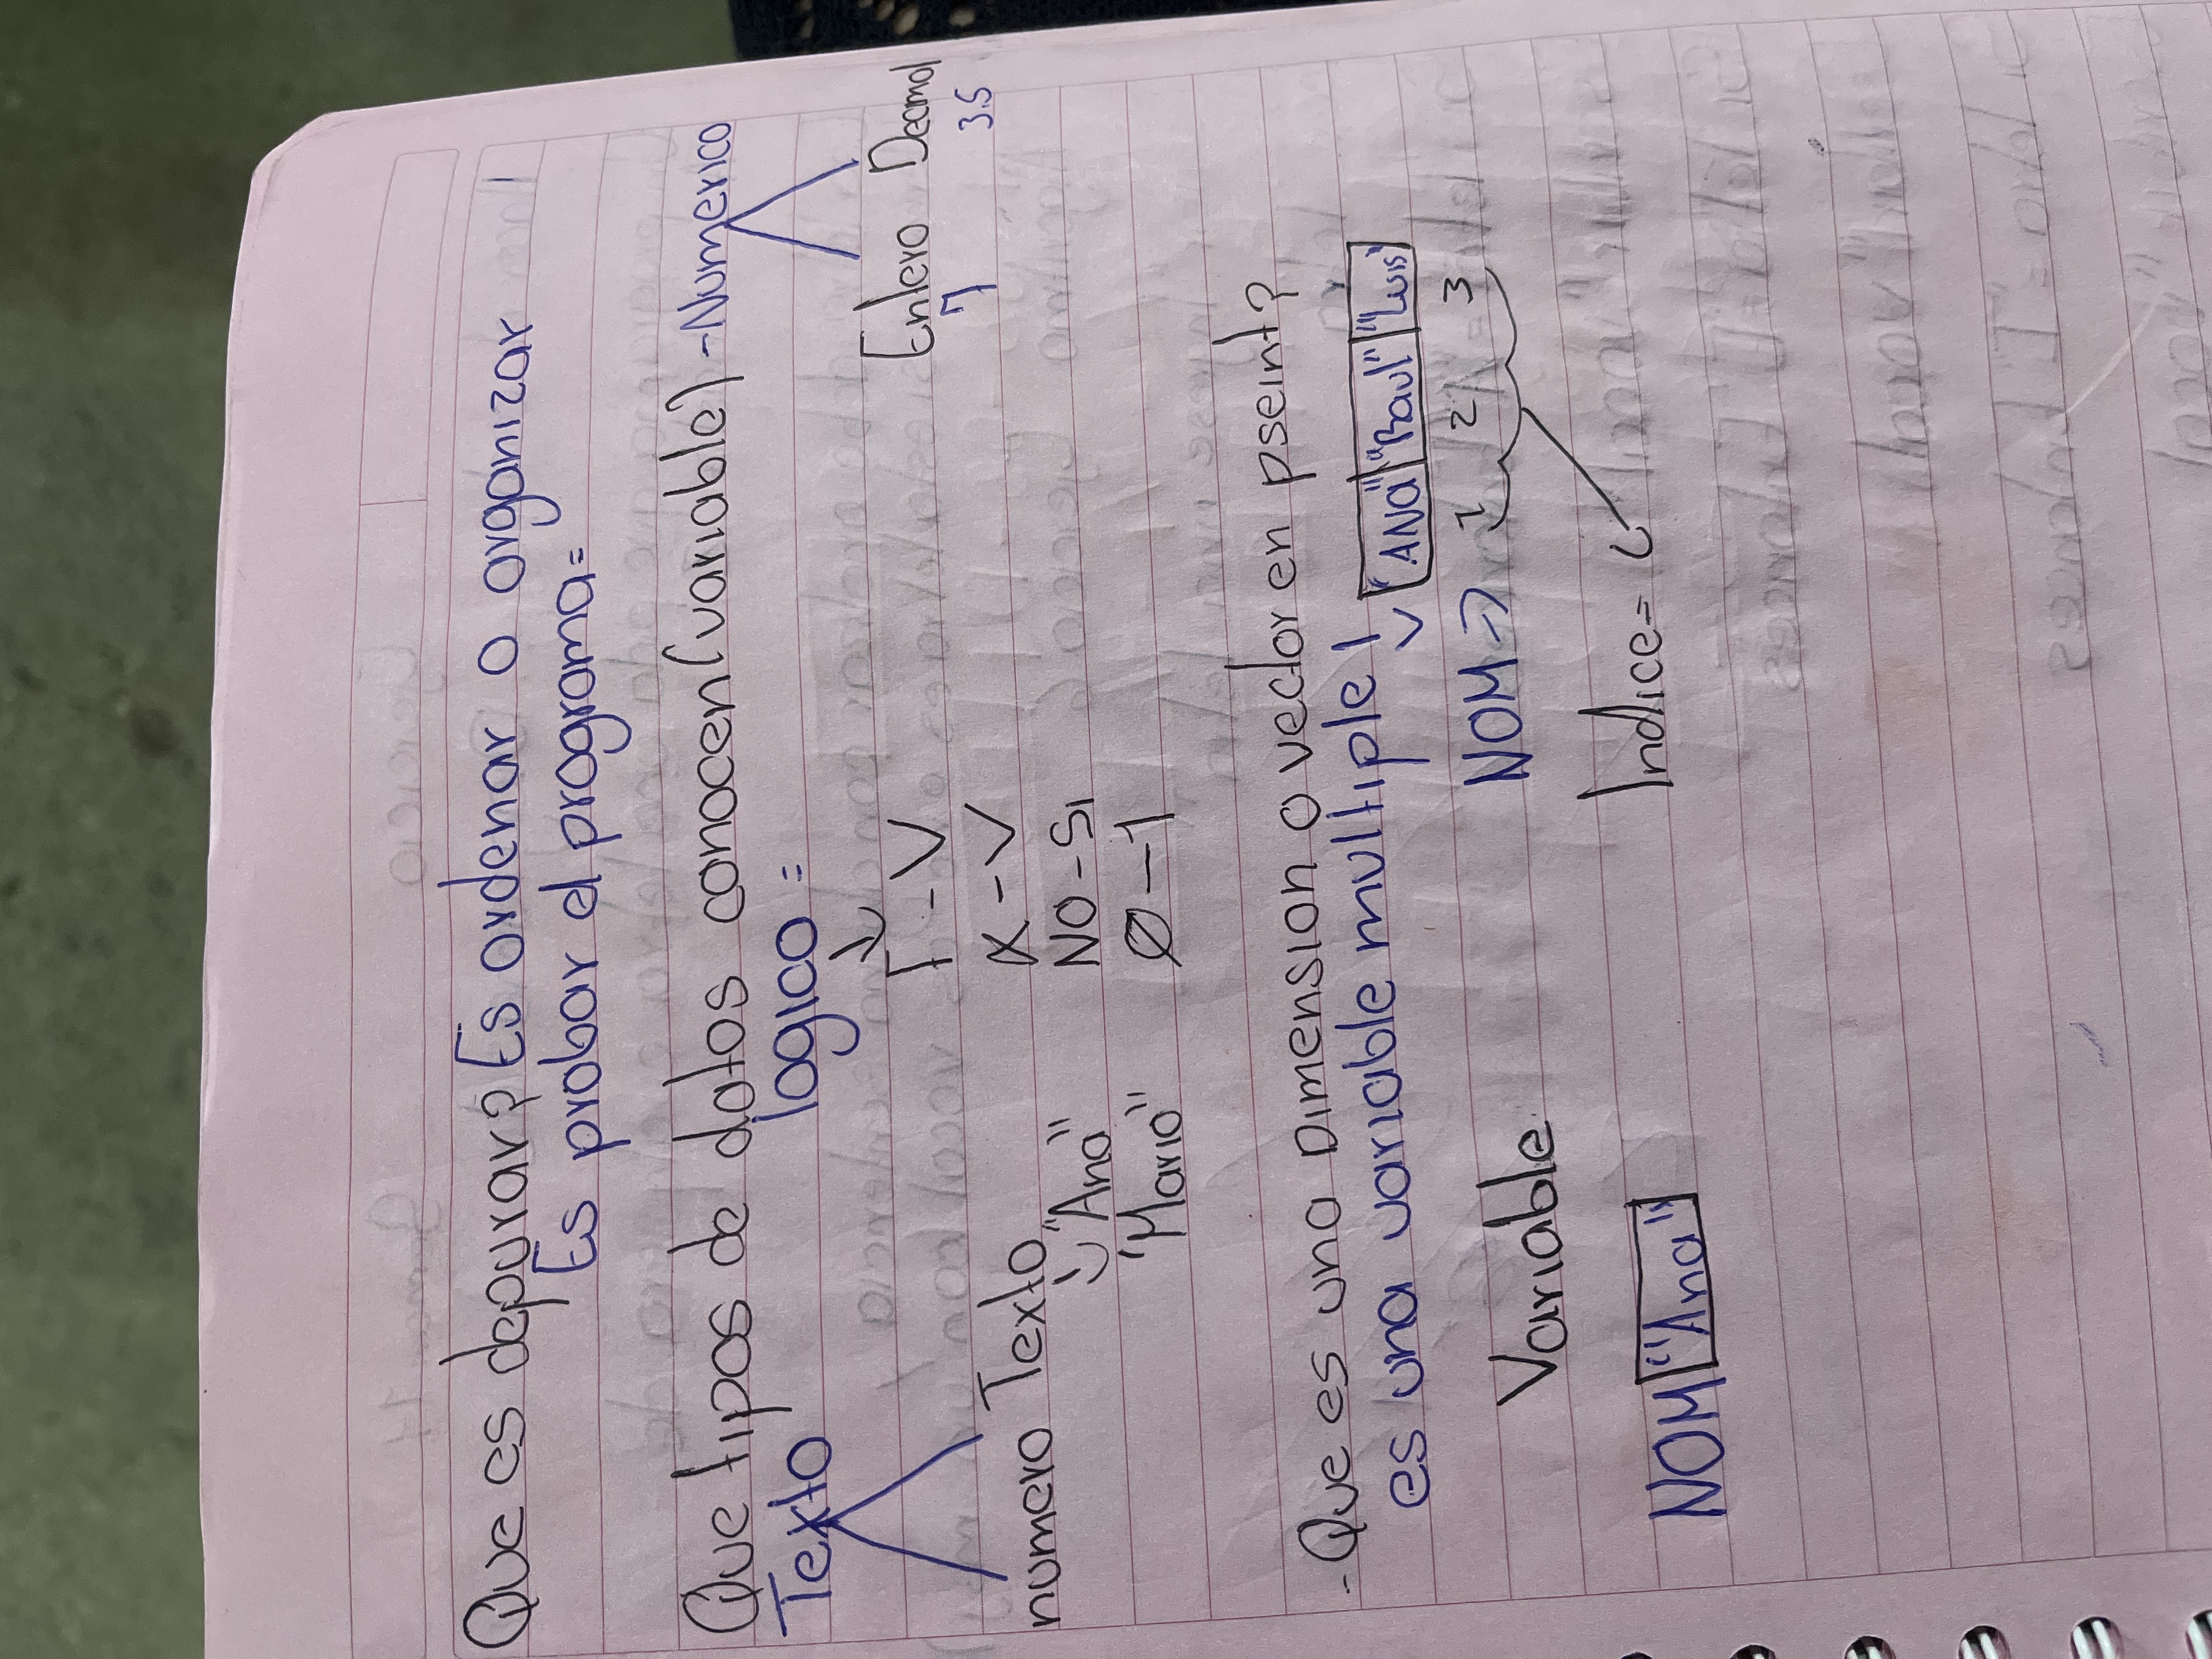 Que es depurar? Es ordenar o organizar
Es probar el programa=
Que tipos de datos conocen (variable) - Numerico
Texto logico =
Entero Decimal
7 3.5
F - V
X - V
NO - SI
Ø - 1
numero Texto
"Ana"
"Mario"
- Que es una Dimension o vector en pseint?
es una variable multiple!
"ANa" "Raul" "Luis"
Variable NOM → 1 2 3
NOM "Ana" Indice=